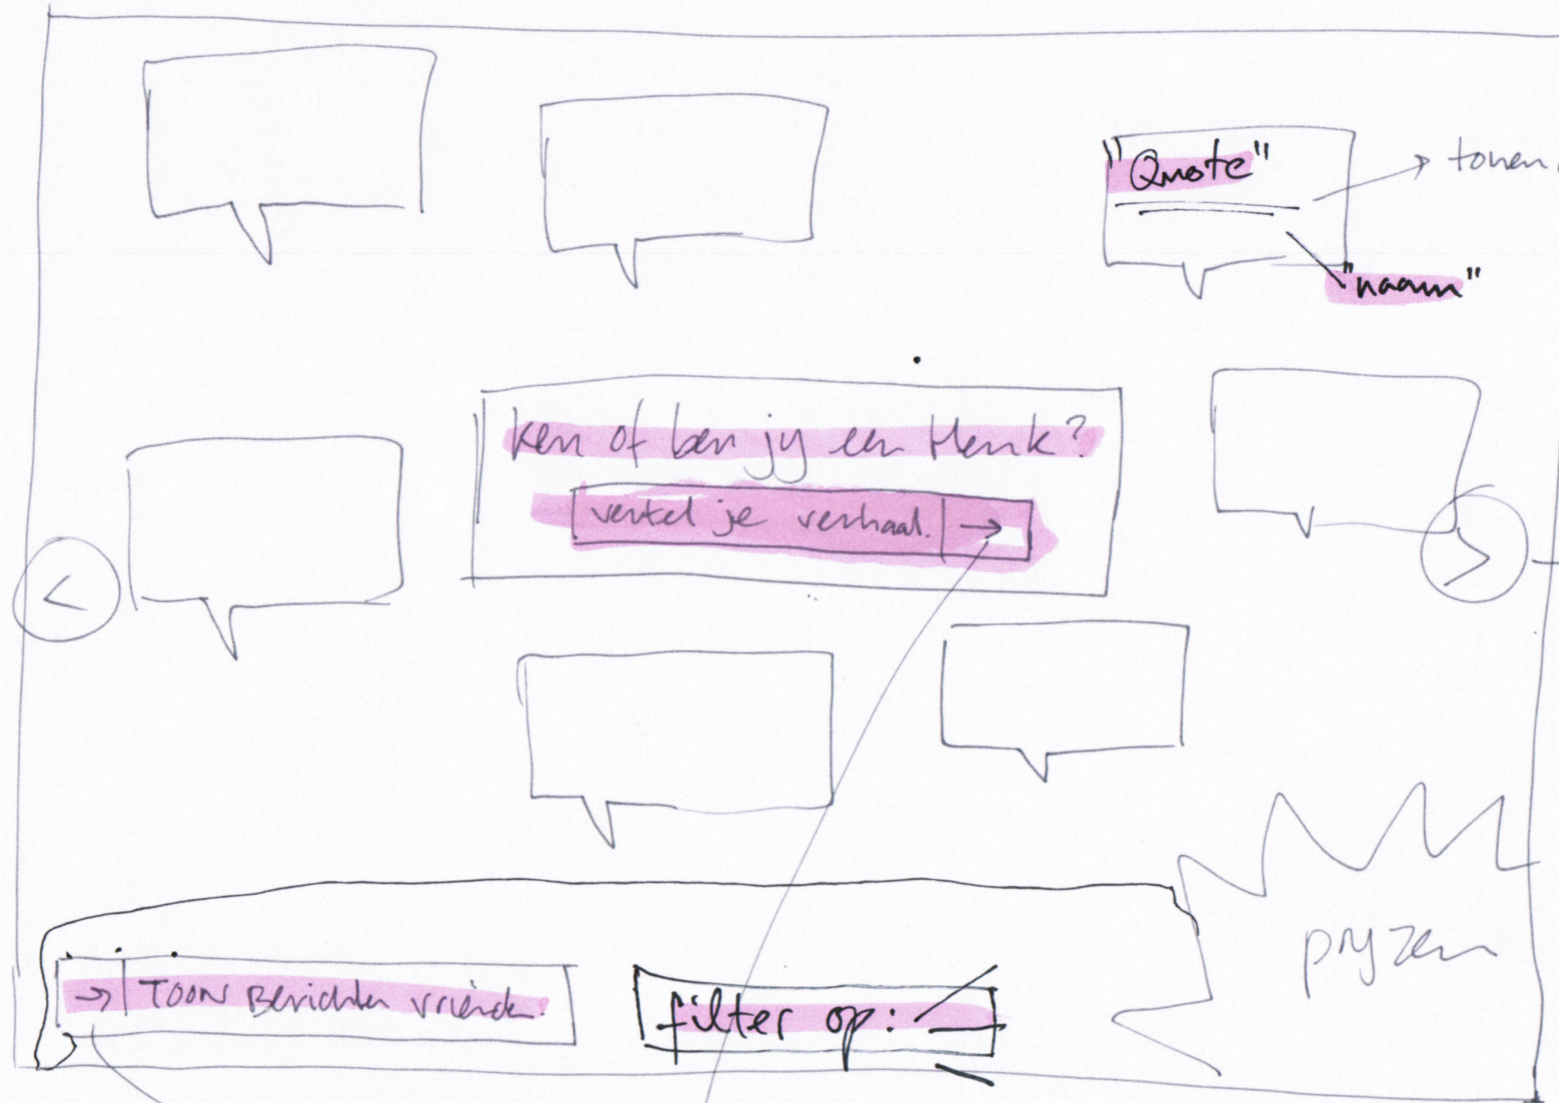 "Quote"
→ tonen
"naam"
Ken of ben jij een Henk?
vertel je verhaal. →
<
>
prijzen
→ TOON Berichten vrienden.
filter op: